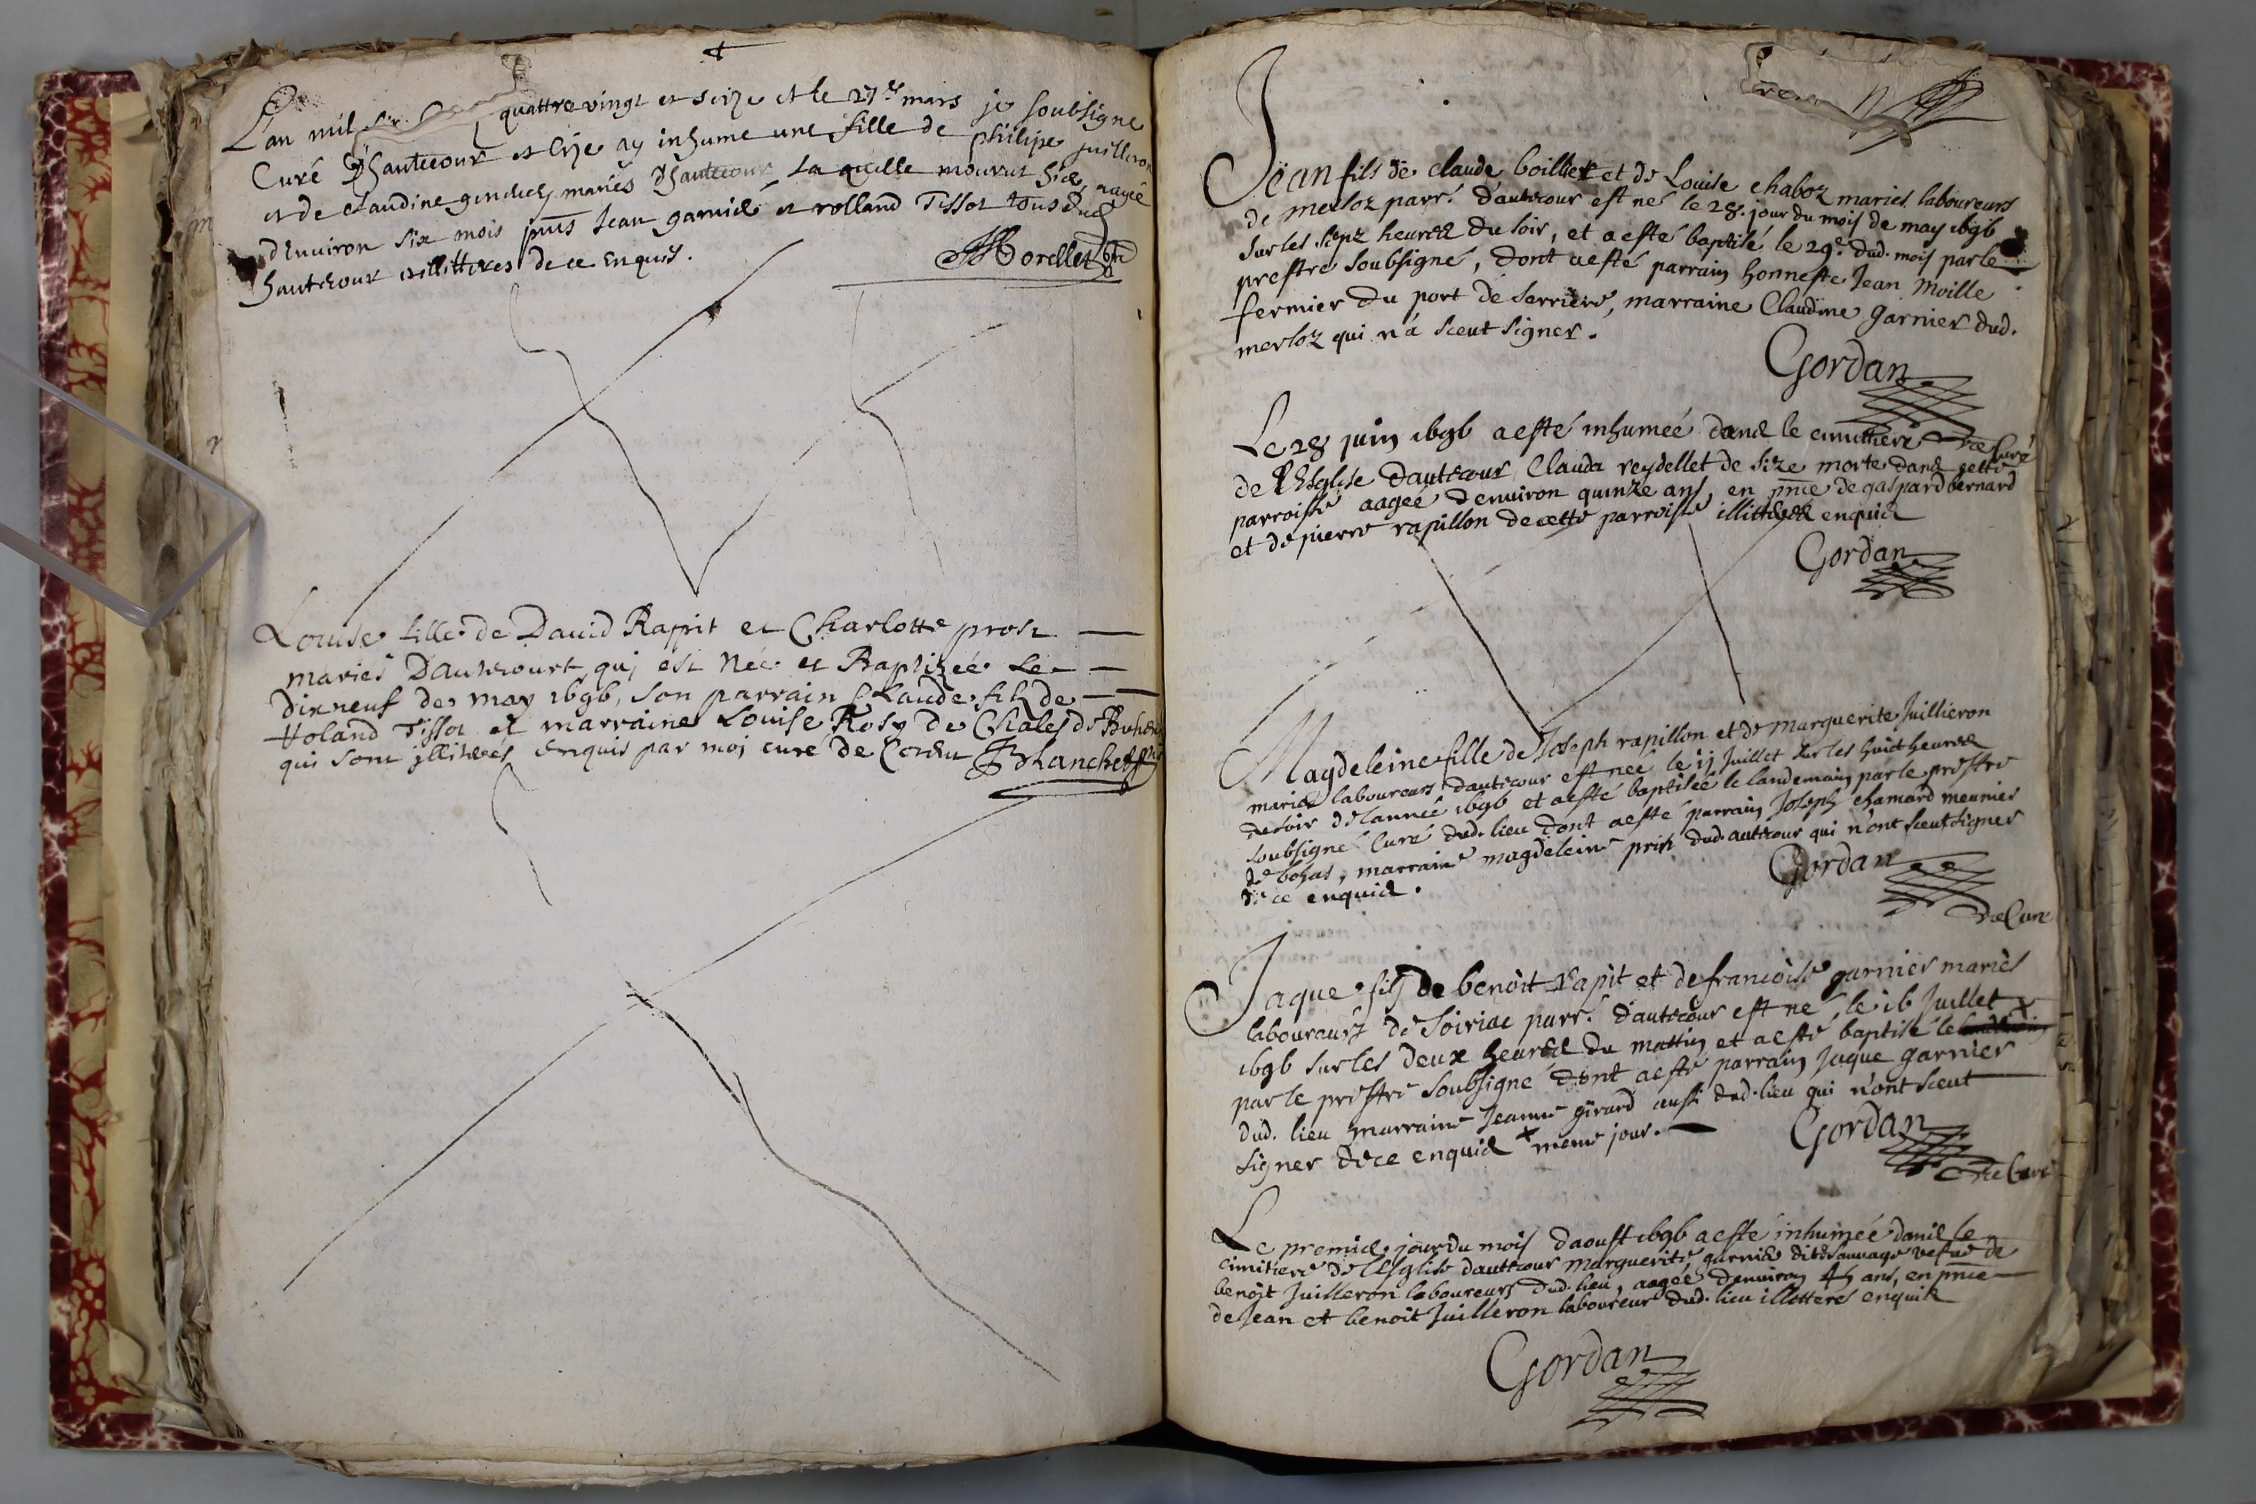 L'an mil six quattre vingt et seize et le 27e mars je soubsigne
Curé D'hautecour et Cize ay inhume une fille de philipe juilleron
et de Claudine maries D'hautecour la quelle mourut hier, aagée
d'Environ six mois pnts Jean garnier et rolland Tissot tous dud
hautecour illitteres de ce Enquis.
Morellet
Louise fille de David Rapit et Charlotte prost
mariés Dautecourt qui est Née et Baptizée Le
dixneuf de may 1696, son parrain Claude filz de
Roland Tissot et marraine Louise Rosy de Chales de Bohas
qui sont illiteres enquis par moi curé de Corveu Blanchet
Jean fils de claude boillet et de Louise chaboz mariés laboureurs
de merloz parr. d'autecour est né le 28. jour du mois de may 1696
sur les sepz heures du soir, et a esté baptisé le 29e. dud. mois par le
prestre soubsigné, dont a esté parrain honneste Jean Moille
fermier du port de serriere, marraine Claudine garnier dud.
merloz qui n'a sceut signer.
Gordan
Le 28 juin 1696 a esté inhumée dans le cimittiere
de l'Esglise d'autecour Clauda reydellet de size morte dans cette
parroisse aagée d'environ quinze ans, en pnce de gaspard bernard
et de pierre rapillon de cette parroisse illitteres enquis
Gordan
Magdeleine fille de Joseph rapillon et de marguerite Juillieron
mariés laboureurs d'autecour est née le 11 Juillet sur les huict heures
du soir de l'année 1696 et a esté baptisée le landemain par le prestre
soubsigné Curé dud. lieu dont a esté parrain Joseph chamard meunier
de bohas, marraine magdeleine prin dud. autecour qui n'ont sceut signer
de ce enquis.
Gordan
Jaque fils de benoit rapit et de francoise garnier mariés
laboureurs de soiriac parr. d'autecour est né, le 16 Juillet
1696 sur les deux heures du mattin et a esté baptisé le
par le prestre soubsigné dont a esté parrain Jaque garnier
dud. lieu marraine Jeanne girard aussi dud. lieu qui n'ont sceut
signer de ce enquis + meme jour.
Gordan
Le premier jour du mois d'aoust 1696 a esté inhumée dans le
cimitiere de l'Esglise d'autecour marguerite garnier dite sauvage vefve de
benoit Juilleron laboureurs dud. lieu, aagée d'environ 45 ans, en pnce
de Jean et benoit Juilleron laboureurs dud. lieu illitteres enquis
Gordan